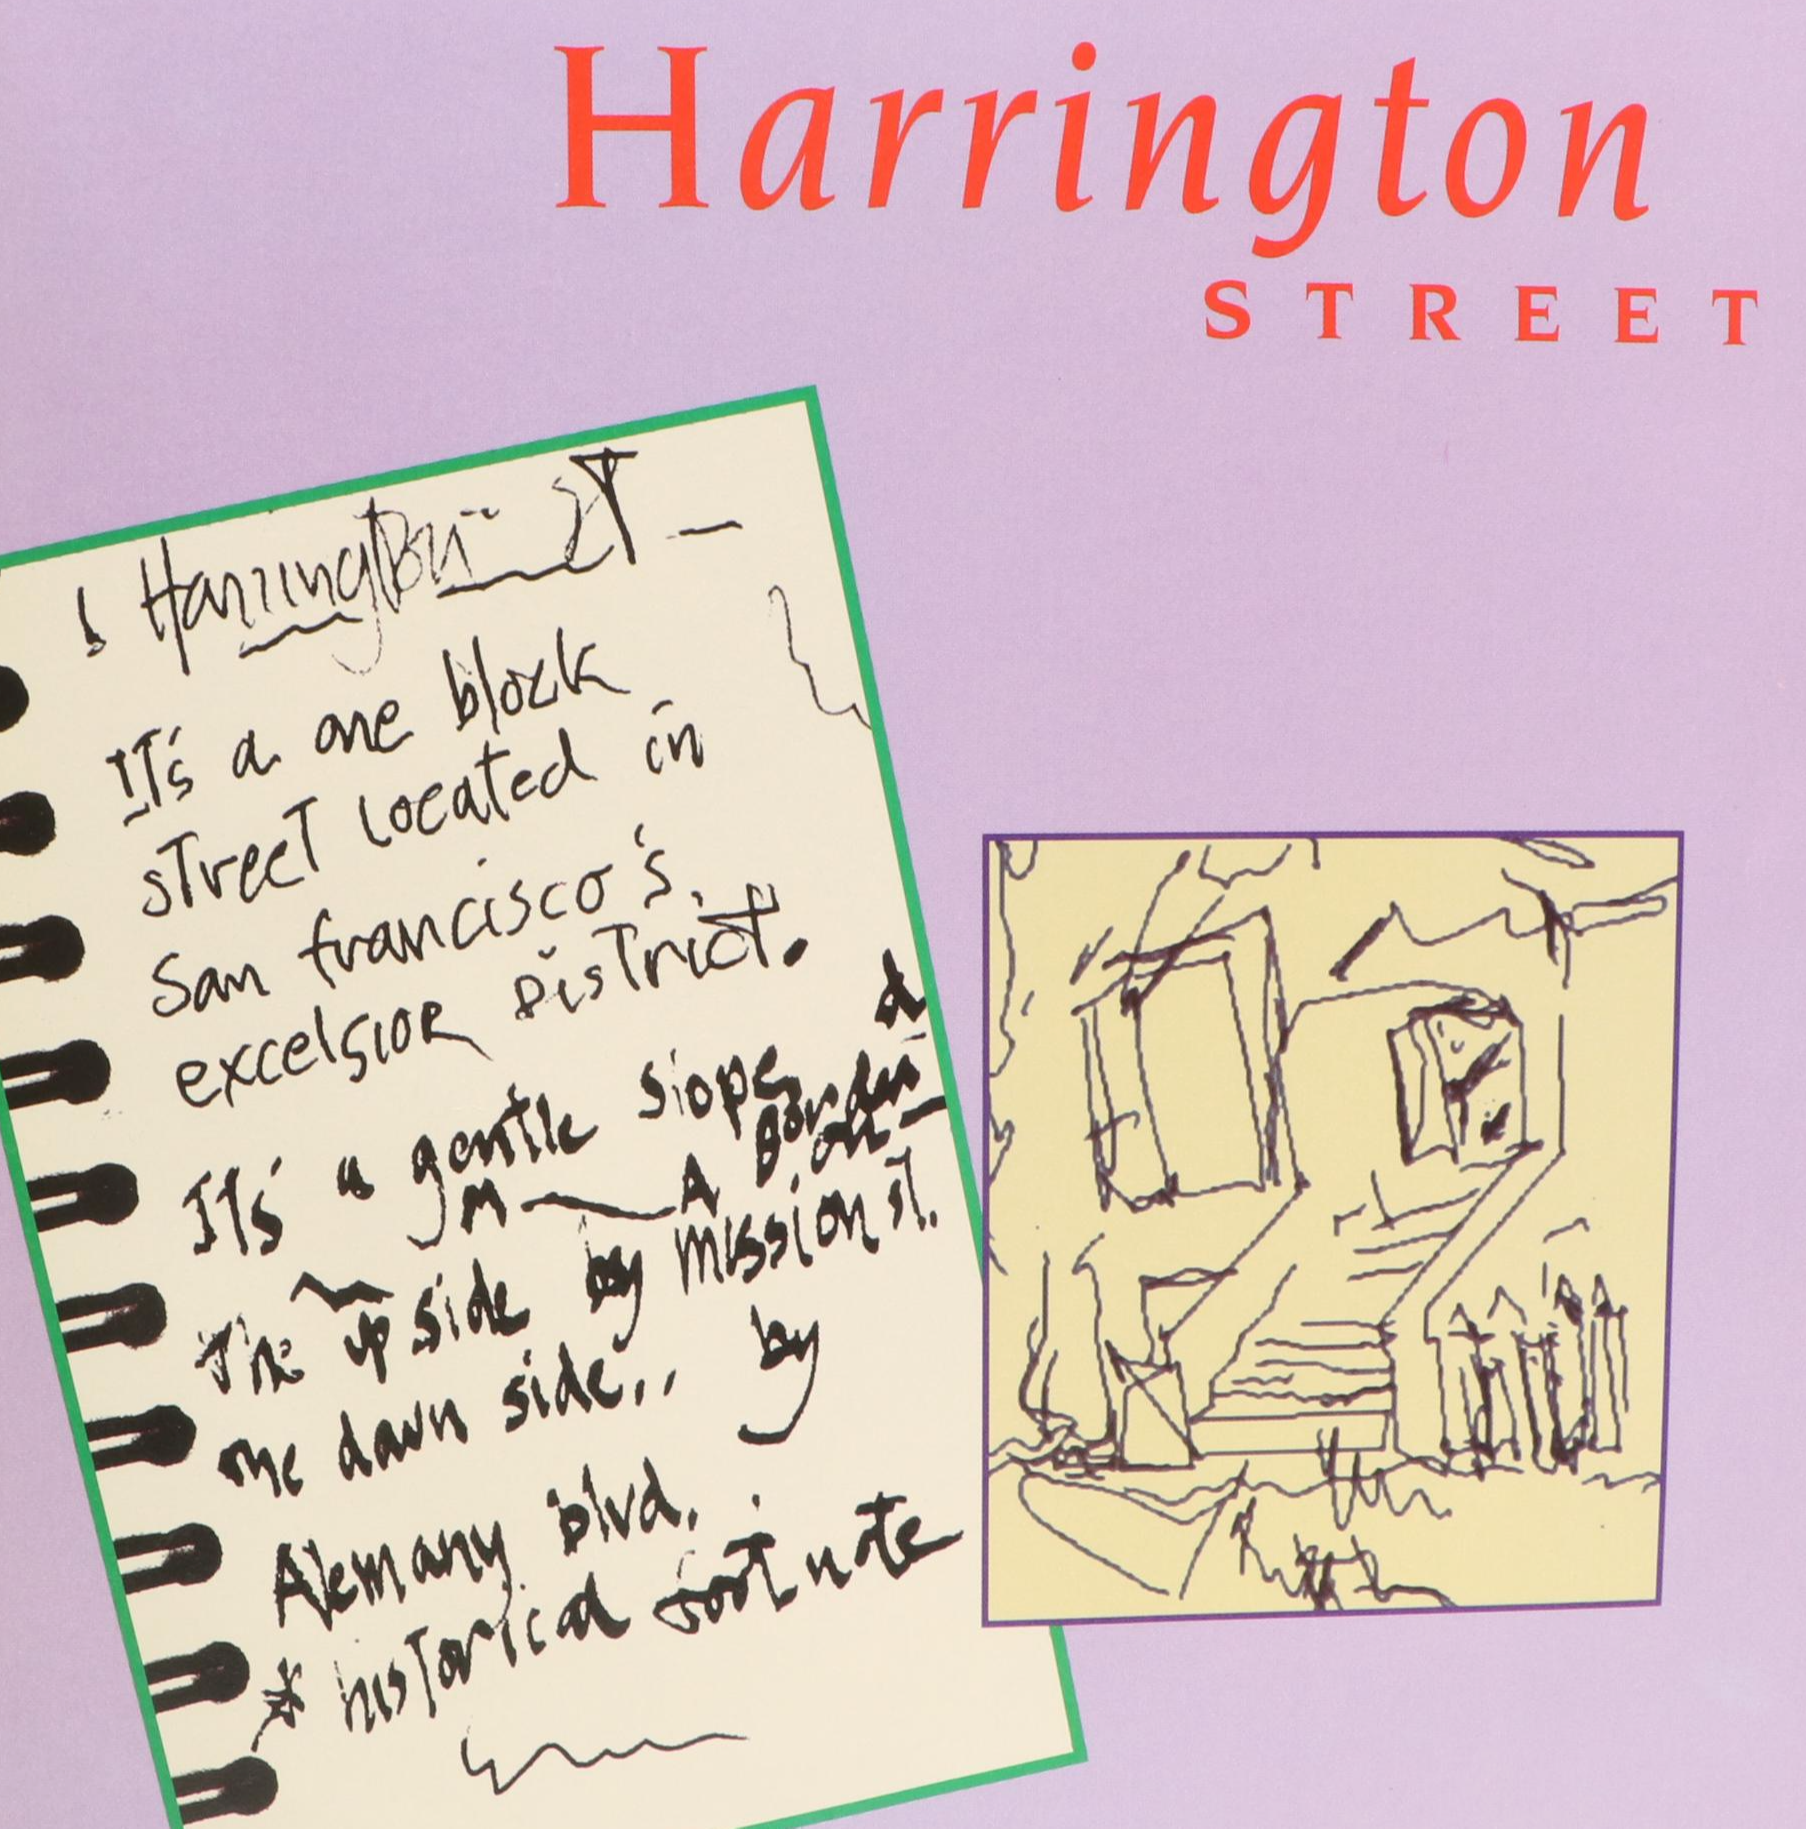 Harrington
STREET
Harrington ST –
It's a one block
street located in
San francisco's
excelsior District.
It's a gentle slope
A Borden
The up side by mission st.
the down side,, by
Alemany blvd.
* historical foot note